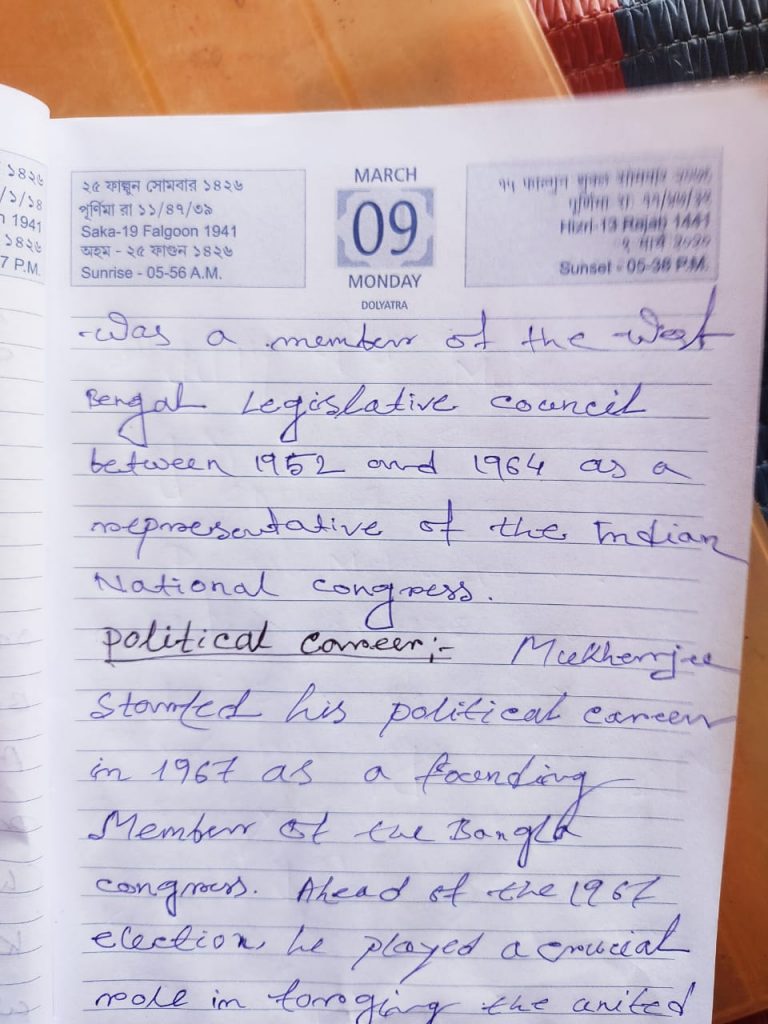 ১৪২৬
/১/১৪
1941
১৪২৬
7 P.M.
২৫ ফাল্গুন সোমবার ১৪২৬
পূর্ণিমা রা ১১/৪৭/৩৯
Saka-19 Falgoon 1941
অহম - ২৫ ফাগুন ১৪২৬
Sunrise - 05-56 A.M.
MARCH
09
MONDAY
DOLYATRA
Hizri-13 Rajab 1441
Sunset - 05-38 P.M.
was a member of the West
Bengal Legislative council
between 1952 and 1964 as a
representative of the Indian
National congress.
political career;- Mukherjee
Started his political career
in 1967 as a founding
Member of the Bangla
congress. Ahead of the 1967
election, he played a crucial
role in forging the united